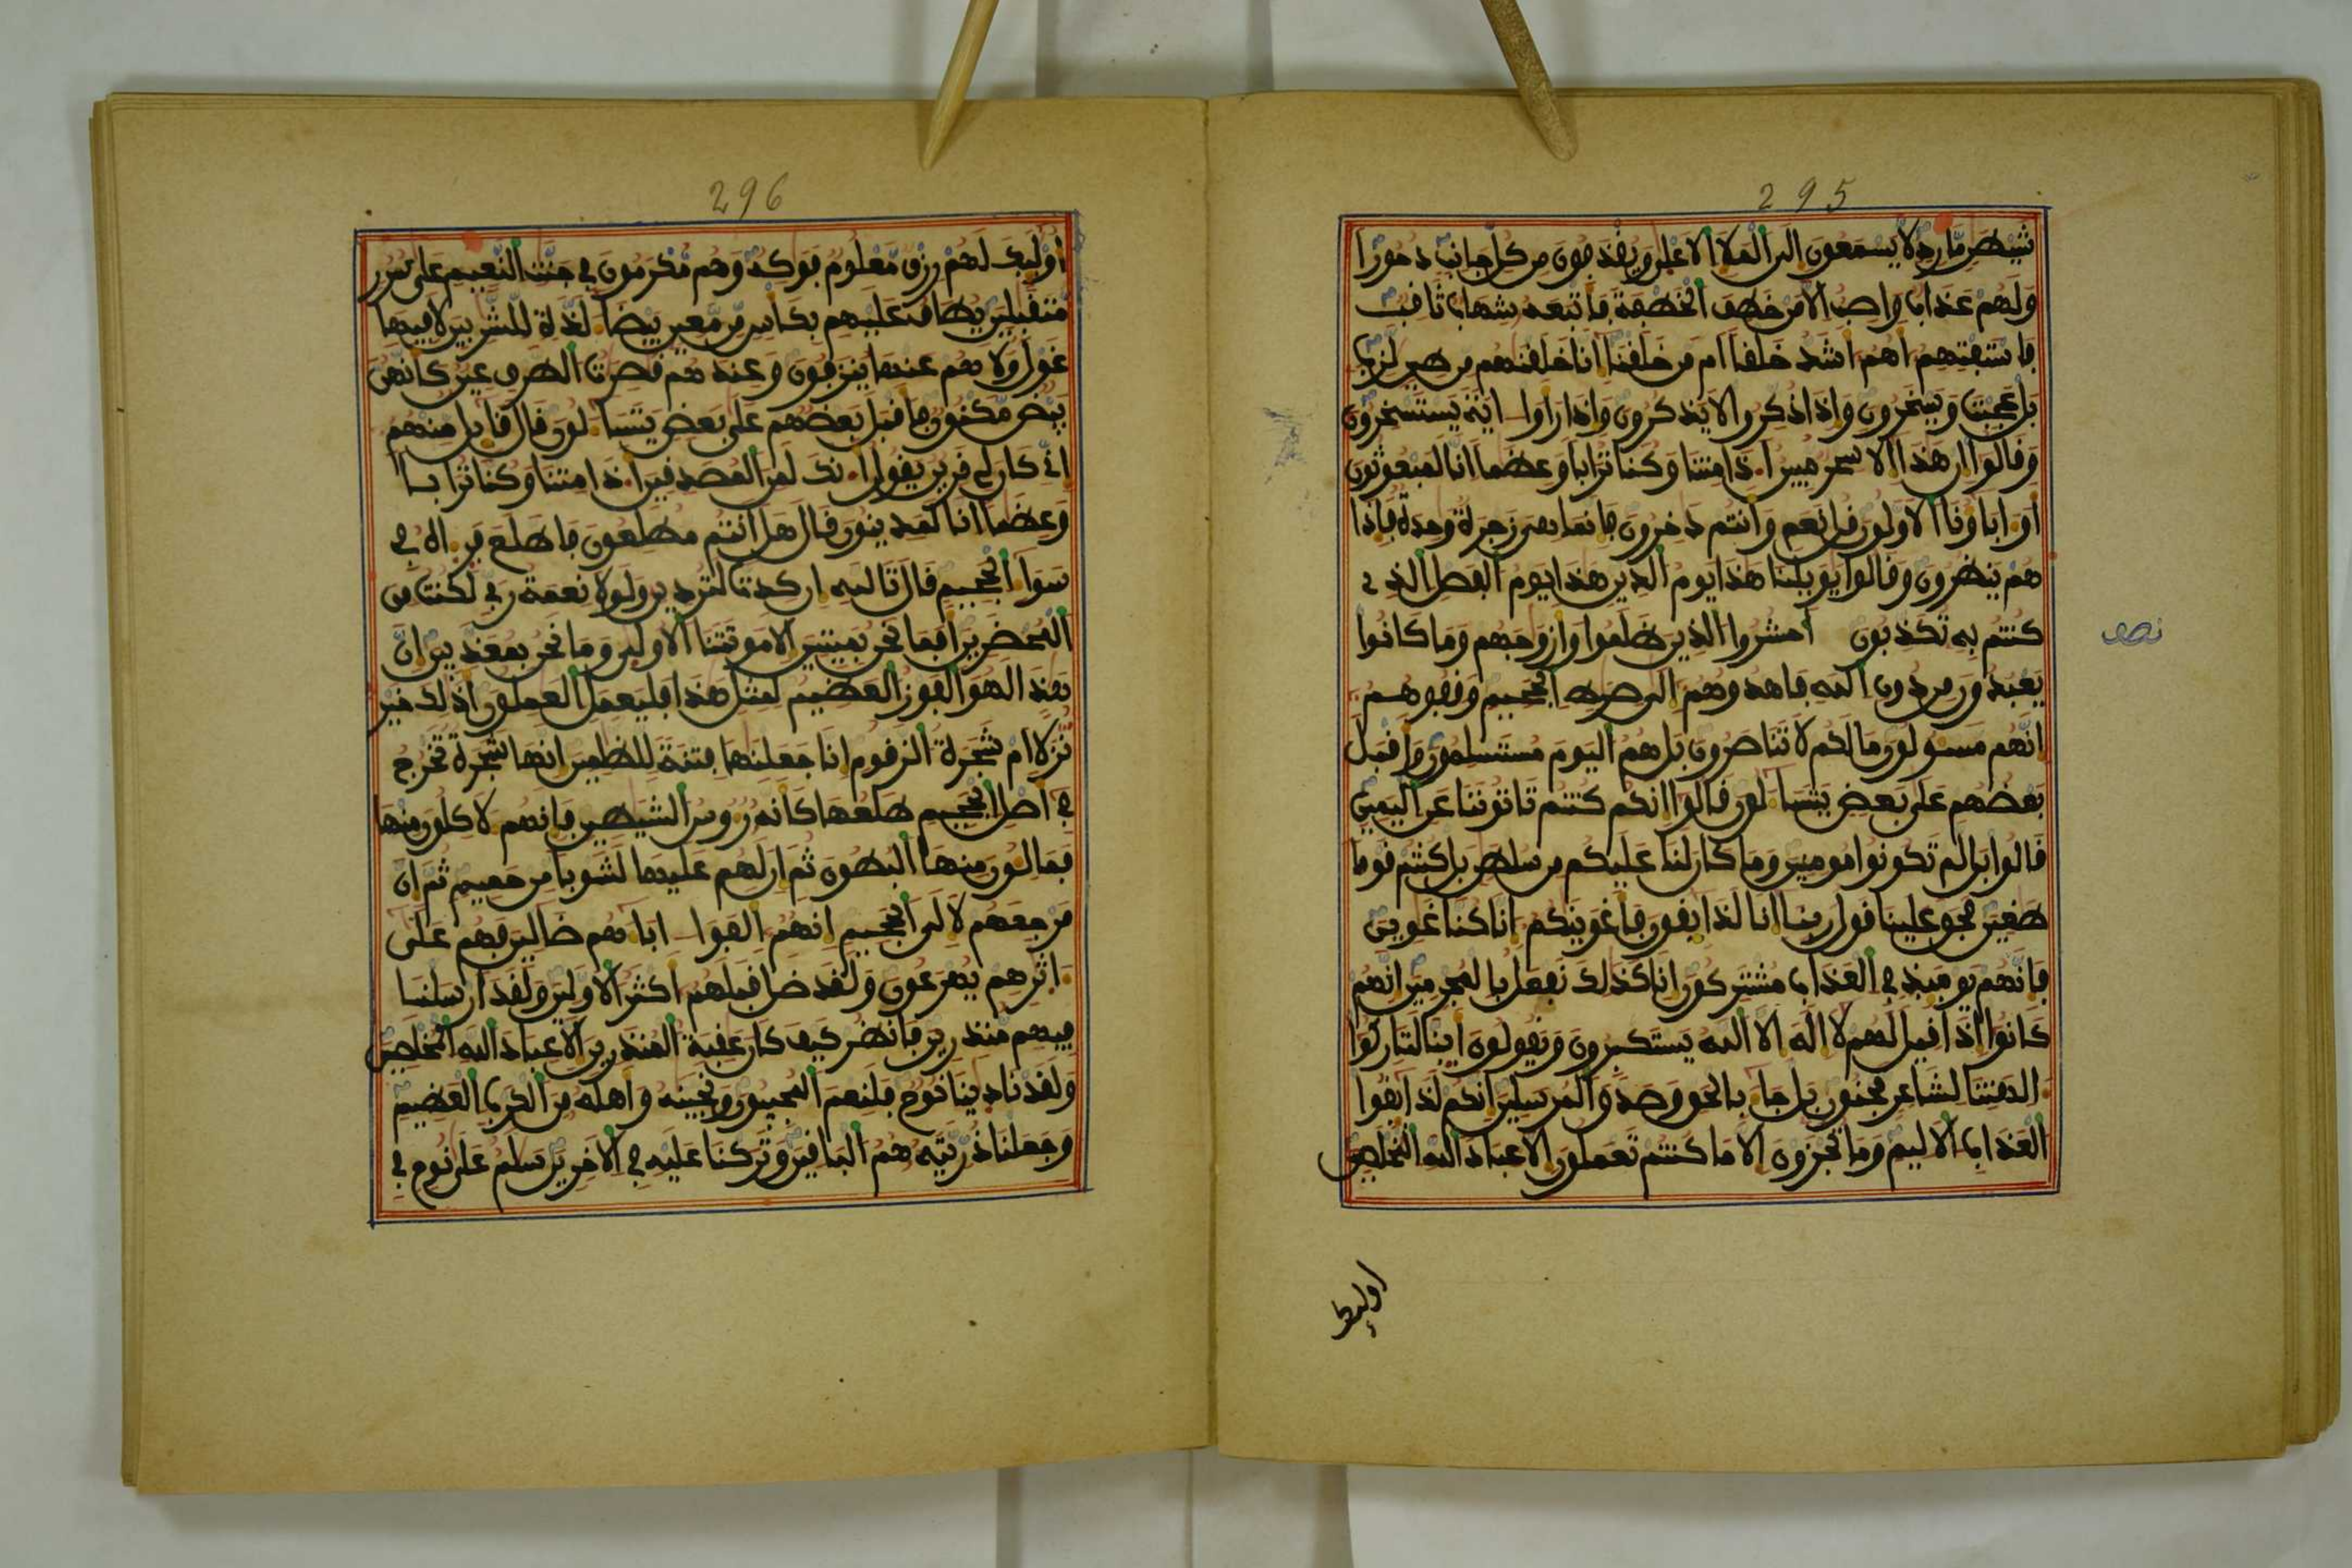 295
شيطن مارد لا يسمعون الى الملا الاعلى ويقذفون من كل جانب دحورا
ولهم عذاب واصب الا من خطف الخطفة فاتبعه شهاب ثاقب
فاستفتهم اهم اشد خلقا ام من خلقنا انا خلقنهم من طين لازب
بل عجبت ويسخرون واذا ذكروا لا يذكرون واذا راوا اية يستسخرون
وقالوا ان هذا الا سحر مبين اذا متنا وكنا ترابا وعظما انا لمبعوثون
او اباونا الاولون قل نعم وانتم دخرون فانما هي زجرة وحدة فاذا
هم ينظرون وقالوا يويلنا هذا يوم الدين هذا يوم الفصل الذي
كنتم به تكذبون احشروا الذين ظلموا وازوجهم وما كانوا
نصف
يعبدون من دون الله فاهدوهم الى صرط الجحيم وقفوهم
انهم مسولون ما لكم لا تناصرون بل هم اليوم مستسلمون واقبل
بعضهم على بعض يتساءلون قالوا انكم كنتم تاتوننا عن اليمين
قالوا بل لم تكونوا مومنين وما كان لنا عليكم من سلطن بل كنتم قوما
طغين فحق علينا قول ربنا انا لذايقون فاغوينكم انا كنا غوين
فانهم يوميذ في العذاب مشتركون انا كذلك نفعل بالمجرمين انهم
كانوا اذا قيل لهم لا اله الا الله يستكبرون ويقولون اينا لتاركوا
الهتنا لشاعر مجنون بل جاء بالحق وصدق المرسلين انكم لذايقوا
العذاب الاليم وما تجزون الا ما كنتم تعملون الا عباد الله المخلصين
اوليك
296
اوليك لهم رزق معلوم فوكه وهم مكرمون في جنت النعيم على سرر
متقبلين يطاف عليهم بكاس من معين بيضاء لذة للشربين لا فيها
غول ولا هم عنها ينزفون وعندهم قصرت الطرف عين كانهن
بيض مكنون فاقبل بعضهم على بعض يتساءلون قال قايل منهم
اني كان لي قرين يقول انك لمن المصدقين اذا متنا وكنا ترابا
وعظما انا لمدينون قال هل انتم مطلعون فاطلع فراه في
سواء الجحيم قال تالله ان كدت لتردين ولولا نعمة ربي لكنت من
المحضرين افما نحن بميتين الا موتتنا الاولى وما نحن بمعذبين ان
هذا لهو الفوز العظيم لمثل هذا فليعمل العملون اذلك خير
نزلا ام شجرة الزقوم انا جعلنها فتنة للظلمين انها شجرة تخرج
في اصل الجحيم طلعها كانه رءوس الشيطين فانهم لاكلون منها
فمالئون منها البطون ثم ان لهم عليها لشوبا من حميم ثم ان
مرجعهم لالى الجحيم انهم الفوا اباءهم ضالين فهم على
اثرهم يهرعون ولقد ضل قبلهم اكثر الاولين ولقد ارسلنا
فيهم منذرين فانظر كيف كان عقبة المنذرين الا عباد الله المخلصين
ولقد نادينا نوح فلنعم المجيبون ونجينه واهله من الكرب العظيم
وجعلنا ذريته هم الباقين وتركنا عليه في الاخرين سلم على نوح في